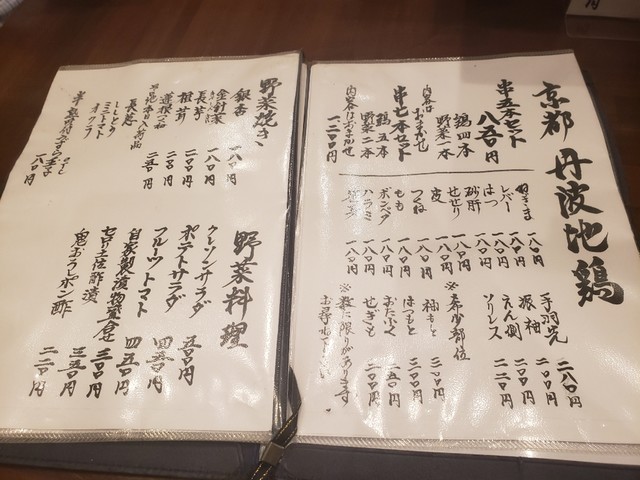 京都 丹波地鶏
串五本セット
八五〇円
鶏四本
野菜一本
内容は
おまかせ
串七本セット
鶏五本
野菜二本
内容はおまかせ
一二〇〇円
ねぎま 一八〇円
レバー 一八〇円
はつ 一八〇円
砂肝 一八〇円
せせり 一八〇円
皮 一八〇円
つくね 一八〇円
もも 一八〇円
ボンベタ 一八〇円
ハラミ 一八〇円
一八〇円
手羽先 二八〇円
振袖 二〇〇円
えんがわ
ソリレス 二二〇円
※希少部位
袖もと 二〇〇円
はつもと 二〇〇円
おたふく
せぎも 二〇〇円
※数に限りがあります
お尋ね下さい
野菜焼き
銀杏 一八〇円
金針菜 一八〇円
長芋 二〇〇円
椎茸 二〇〇円
蓮根つね 二五〇円
その他本日入荷品
長葱
ししとう
ミニトマト
オクラ
うずら玉子
一八〇円
野菜料理
クレソンサラダ 五〇〇円
ポテトサラダ
フルーツトマト 四五〇円
自家製漬物盛合せ 四五〇円
セロリ土佐酢漬 三〇〇円
鬼おろしポン酢 二二〇円